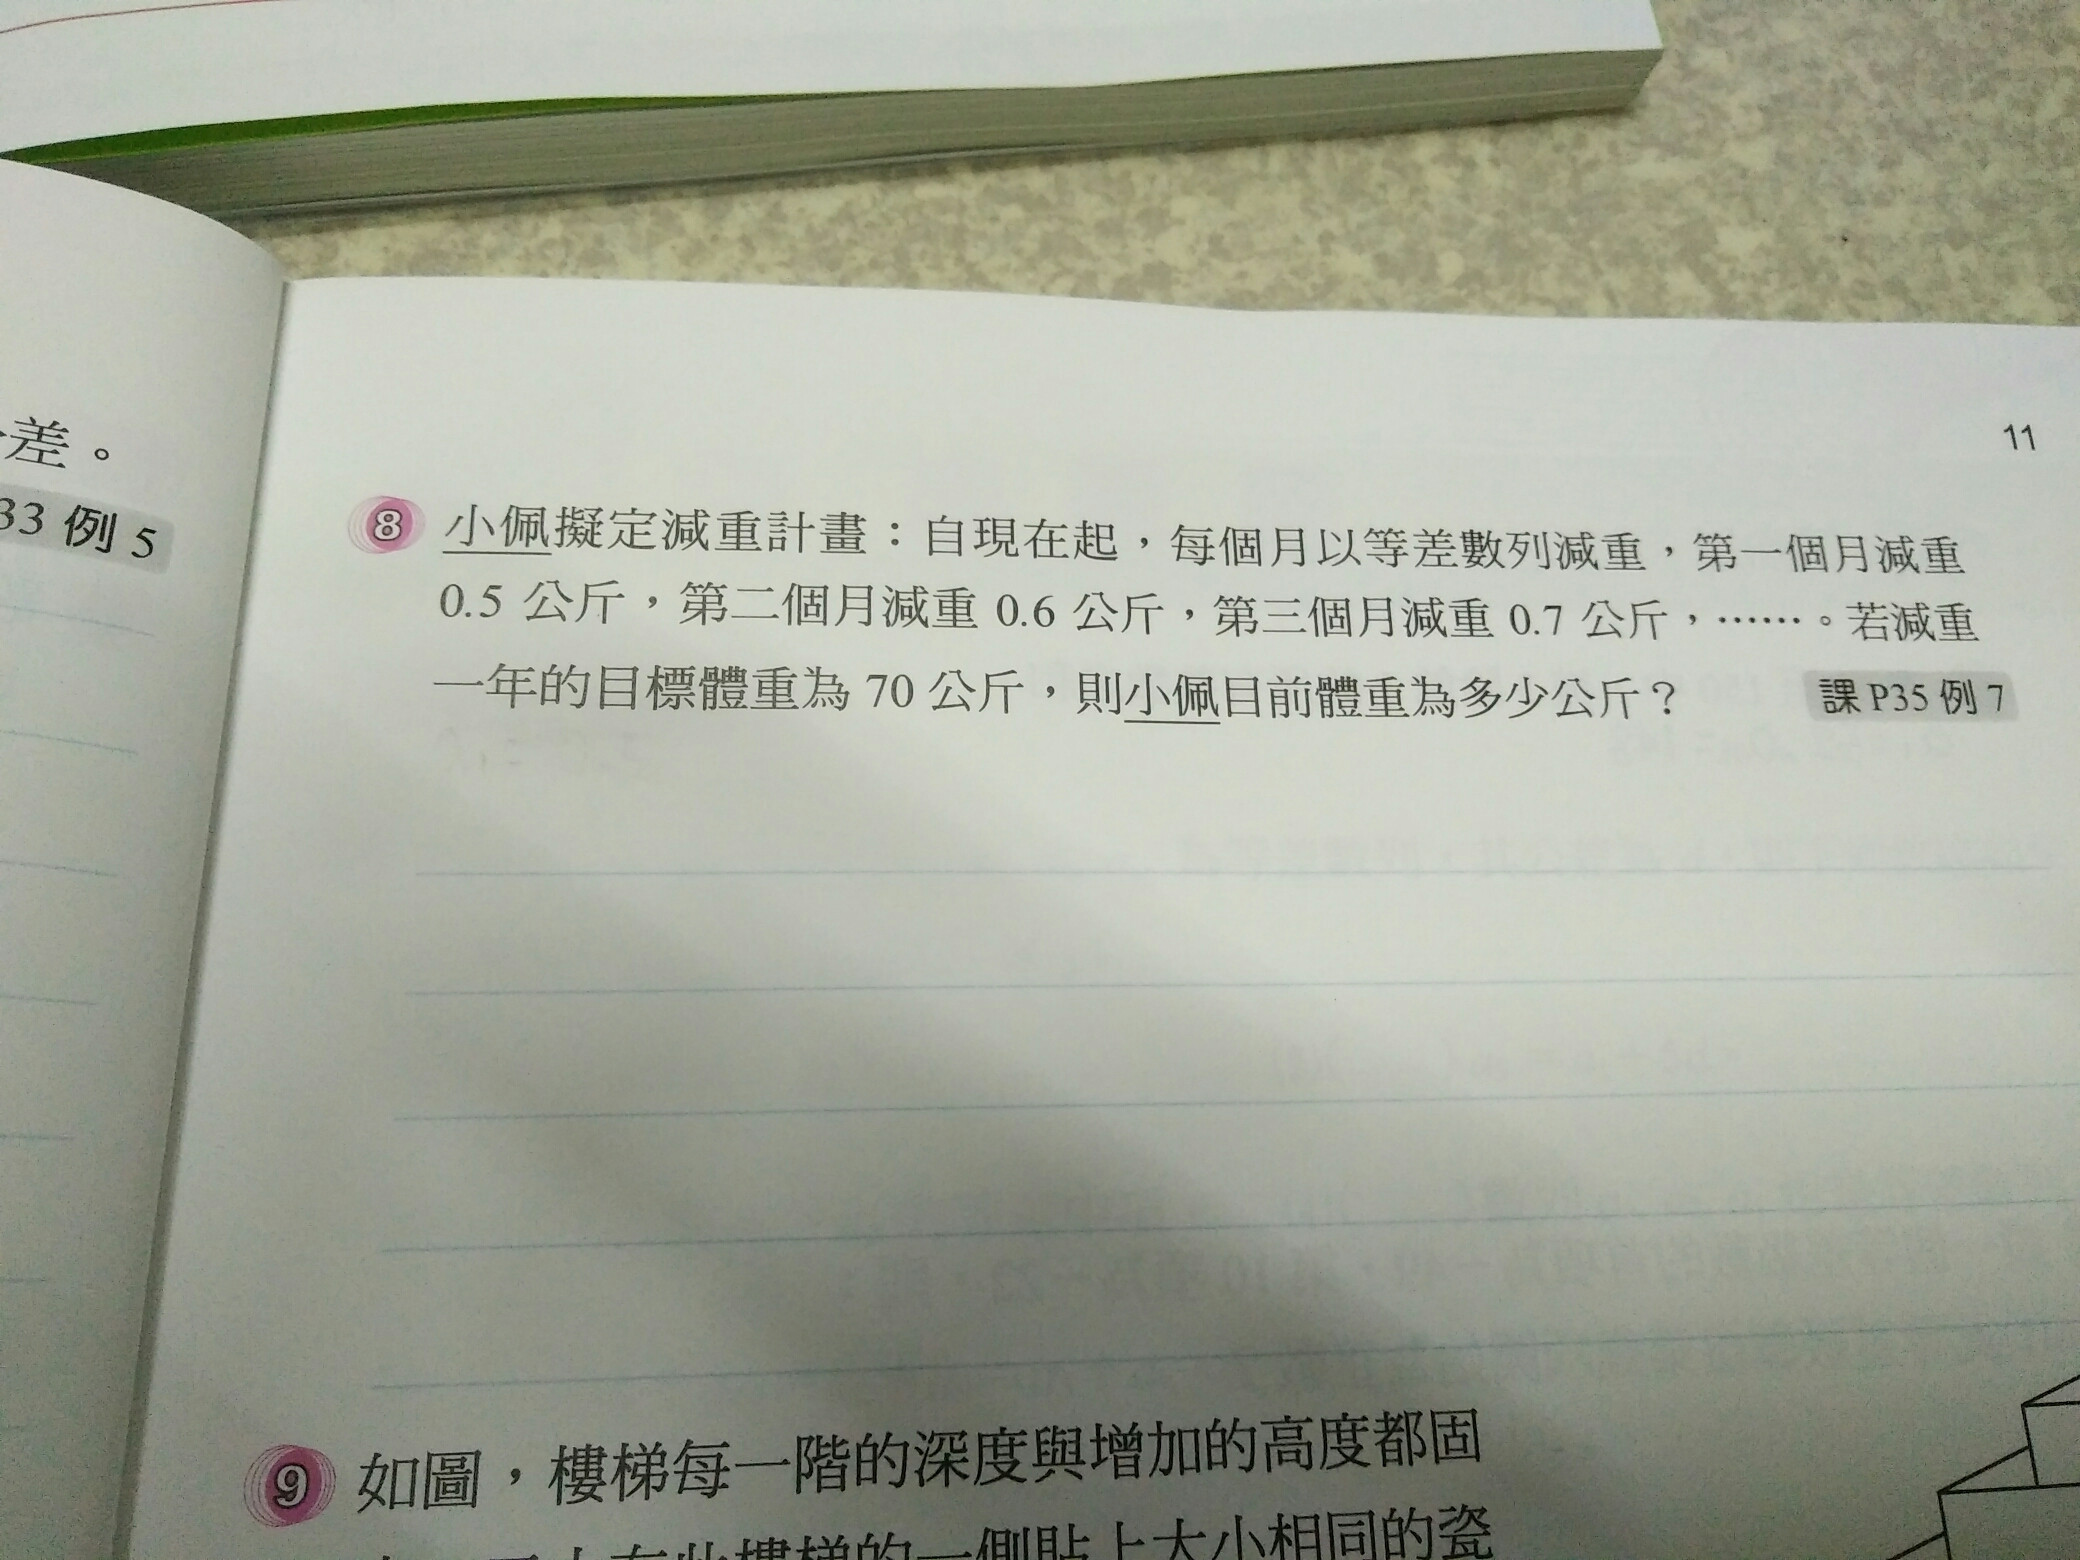 差。
33 例 5
11
8 小佩擬定減重計畫：自現在起，每個月以等差數列減重，第一個月減重
0.5 公斤，第二個月減重 0.6 公斤，第三個月減重 0.7 公斤，……。若減重
一年的目標體重為 70 公斤，則小佩目前體重為多少公斤？ 課 P35 例 7
9 如圖，樓梯每一階的深度與增加的高度都固
此樓梯的一側貼上大小相同的瓷